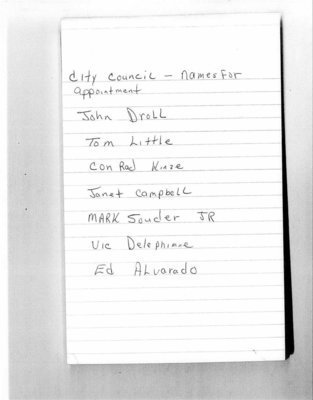 City Council - Names For
appointment
John Droll
Tom Little
Conrad
Janet Campbell
MARK Souder JR
Vic
Ed Alvarado